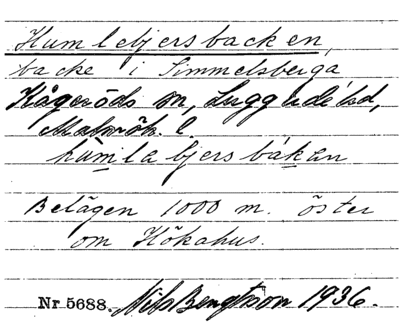 Humlebjersbacken,
backe i Simmelsberga
Kågeröds sn, Luggude hd,
Malmöh. l.
humla bjers bákan
Belägen 1000 m. öster
om Hökahus.
Nr 5688. Nils Bengtsson 1936.